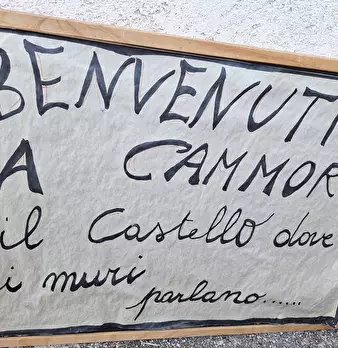 BENVENUTI
A CAMMOR
il Castello dove
i muri
parlano......